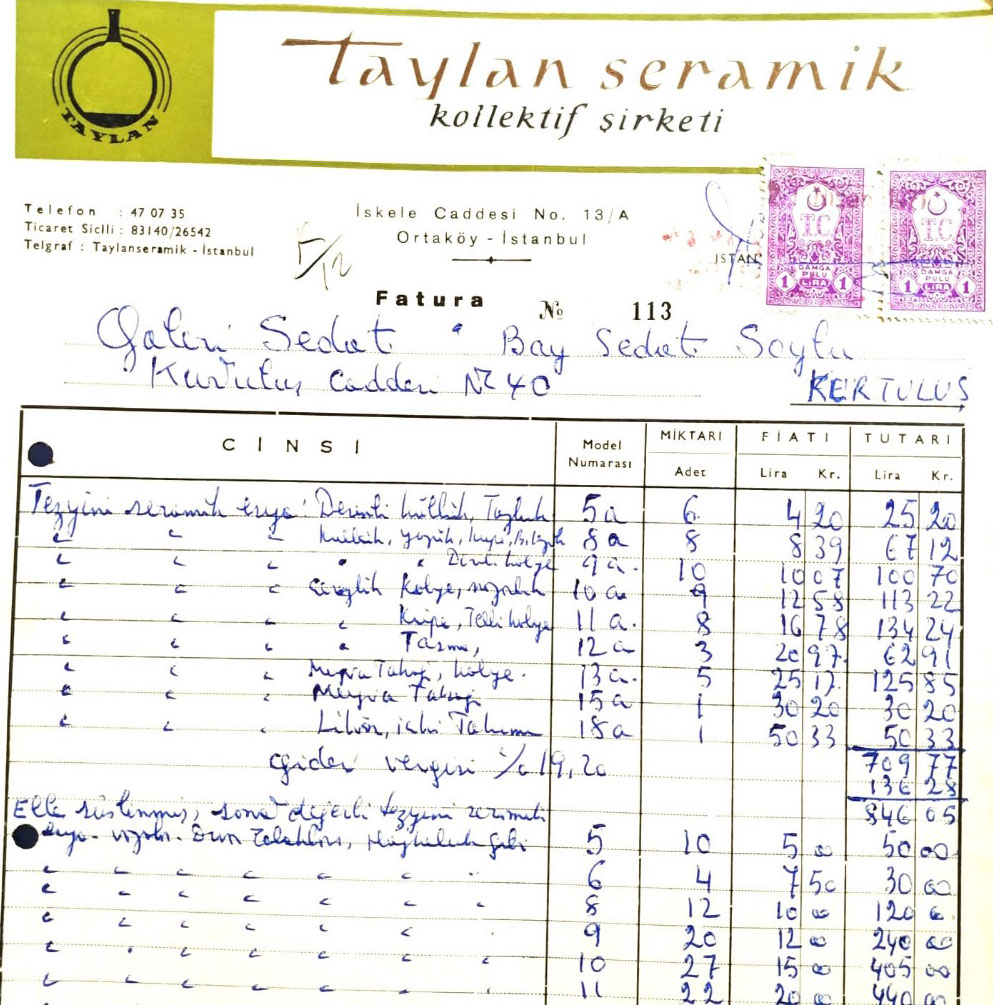 TAYLAN
Taylan seramik
kollektif şirketi
Telefon : 47 07 35
Ticaret Sicilli : 83140/26542
Telgraf : Taylanseramik - İstanbul
İskele Caddesi No. 13/A
Ortaköy - İstanbul
İSTAN
T.C.
DAMGA
PULU
1 LİRA 1
T.C.
DAMGA
PULU
1 LİRA 1
5/12
Fatura № 113
Galeri Sedat Bay Sedat Soylu
Kurtuluş Caddesi Nr 40 KURTULUŞ
CİNSİ Model Numarası MİKTARI Adet FİATI Lira Kr. TUTARI Lira Kr.
Tezyini seramik eşya: Desenli küllük, 5a 6 4 20 25 20
" " " Küllük, 8a 8 8 39 67 12
" " " " " kolye 9a 10 10 07 100 70
" " " Kolye, 10a 9 12 58 113 22
" " " " Küpe, Telli kolye 11a 8 16 78 134 24
" " " " 12a 3 20 97 62 91
" " " Meyva Tabağı, kolye 13a 5 25 17 125 85
" " " Meyva Tabağı 15a 1 30 20 30 20
" " " Likör, içki Takımı 18a 1 50 33 50 33
709 77
gider vergisi % 19,20 136 28
846 05
Elle süslenmiş, sanat değerli tezyini seramik
eşya 5 10 5 00 50 00
" " " " " " 6 4 7 50 30 00
" " " " " " 8 12 10 00 120 00
" " " " " 9 20 12 00 240 00
" " " " " " 10 27 15 00 405 00
" " " " " " 11 22 20 00 440 00